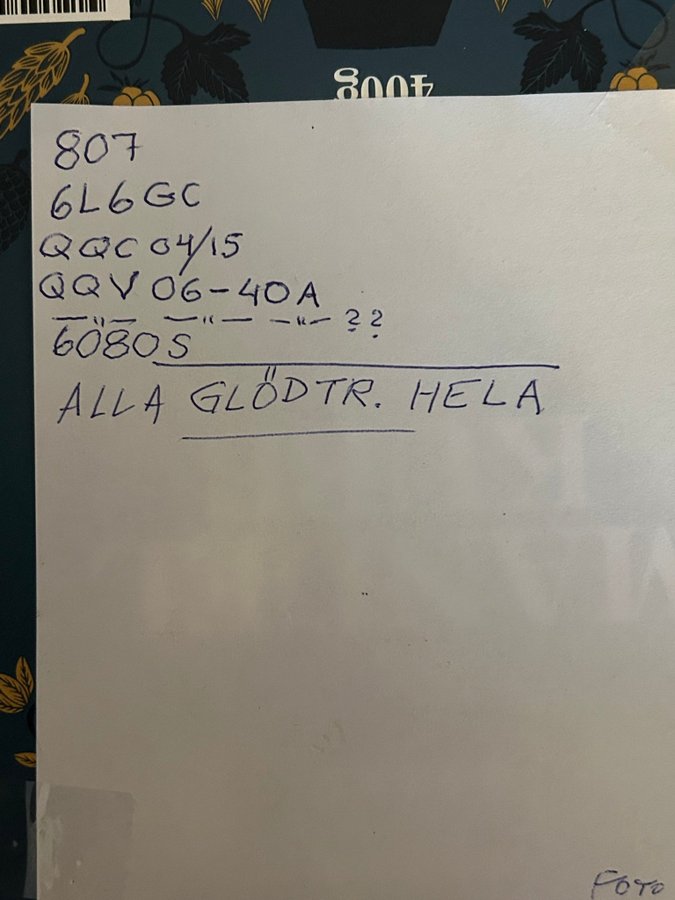 400g
807
6L6GC
QQC 04/15
QQV 06-40A
—"— —"— —"— ??
6080S
ALLA GLÖDTR. HELA
FOTO